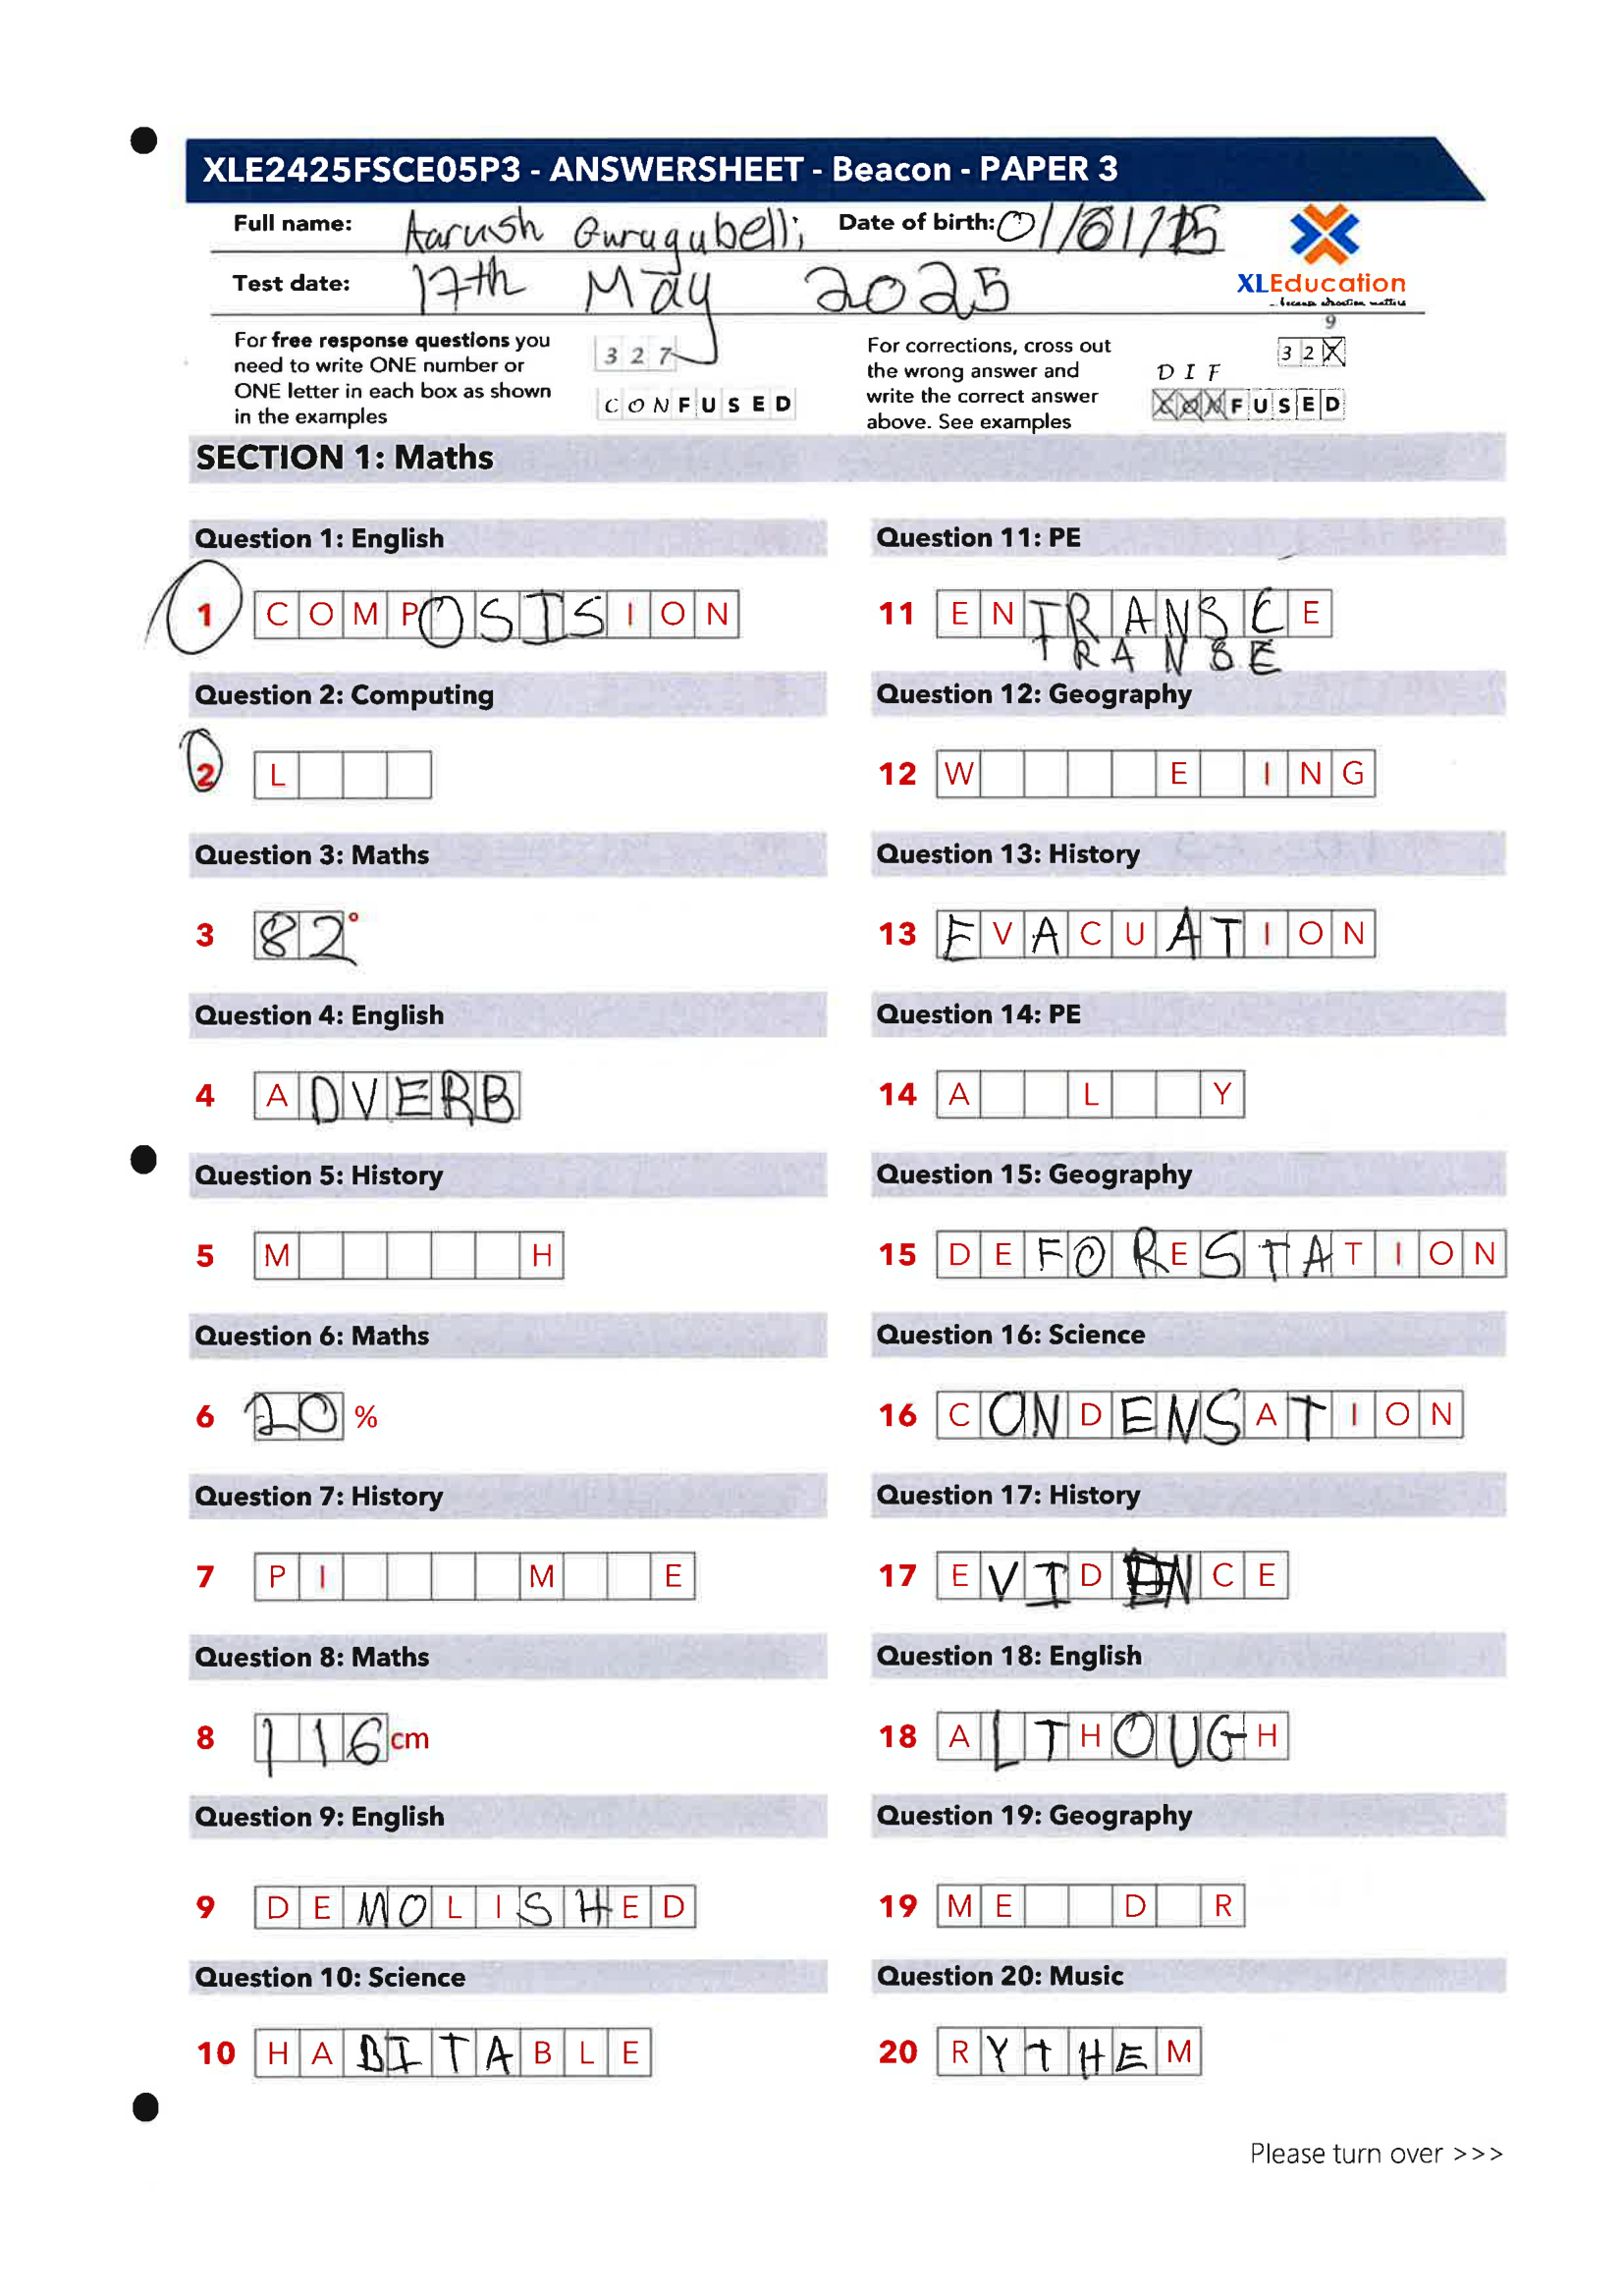 XLE2425FSCE05P3 - ANSWERSHEET - Beacon - PAPER 3
Full name: Aarush Gurugubelli Date of birth: 01/01/15
Test date: 17th May 2025
XLEducation
...because education matters
For free response questions you
need to write ONE number or
ONE letter in each box as shown
in the examples
3 2 7
C O N F U S E D
For corrections, cross out
the wrong answer and
write the correct answer
above. See examples
9
3 2 X
D I F
F U S E D
SECTION 1: Maths
Question 1: English
1 C O M P O S I S I O N
Question 2: Computing
2 L
Question 3: Maths
3 8 2 °
Question 4: English
4 A D V E R B
Question 5: History
5 M H
Question 6: Maths
6 2 0 %
Question 7: History
7 P I M E
Question 8: Maths
8 1 1 6 cm
Question 9: English
9 D E M O L I S H E D
Question 10: Science
10 H A B I T A B L E
Question 11: PE
11 E N T R A N S C E
T R A N S E
Question 12: Geography
12 W E I N G
Question 13: History
13 E V A C U A T I O N
Question 14: PE
14 A L Y
Question 15: Geography
15 D E F O R E S T A T I O N
Question 16: Science
16 C O N D E N S A T I O N
Question 17: History
17 E V I D E N C E
Question 18: English
18 A L T H O U G H
Question 19: Geography
19 M E D R
Question 20: Music
20 R Y T H E M
Please turn over >>>